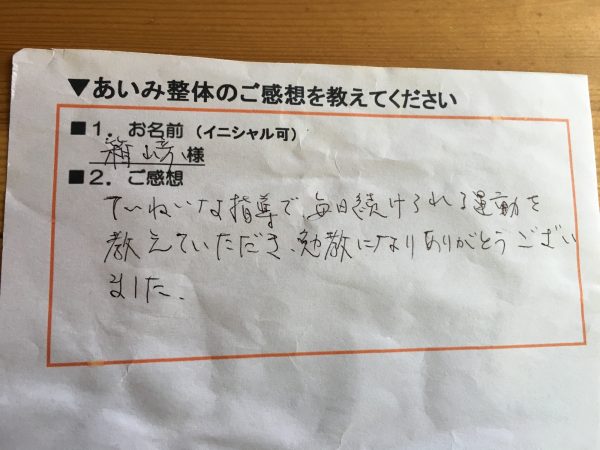 ▼あいみ整体のご感想を教えてください
■1. お名前 (イニシャル可)
箱崎 様
■2. ご感想
ていねいな指導で、毎日続けられる運動を
教えていただき、勉教になりありがとうござい
ました.